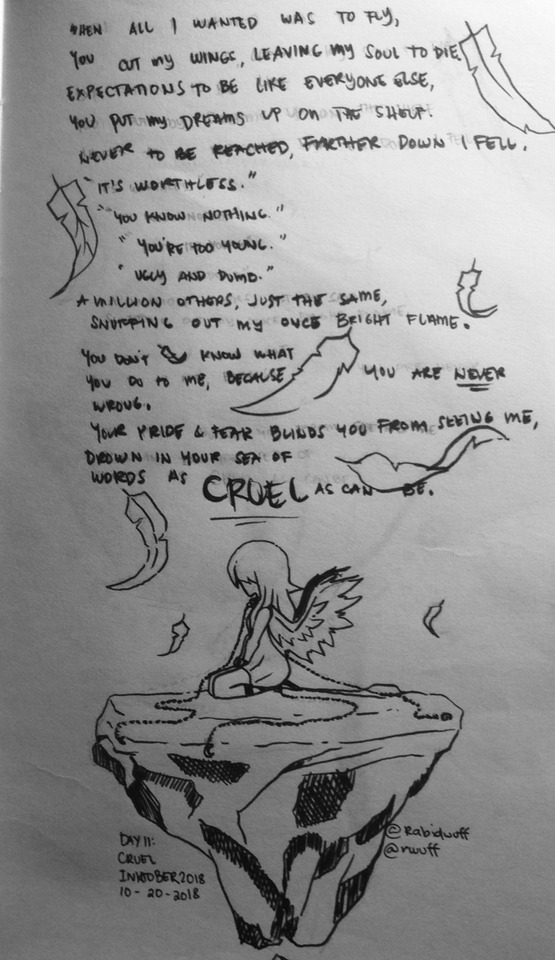 WHEN ALL I WANTED WAS TO FLY,
YOU CUT MY WINGS, LEAVING MY SOUL TO DIE.
EXPECTATIONS TO BE LIKE EVERYONE ELSE,
YOU PUT MY DREAMS UP ON THE SHELF.
NEVER TO BE REACHED, FARTHER DOWN I FELL.
"IT'S WORTHLESS."
"YOU KNOW NOTHING."
"YOU'RE TOO YOUNG."
"UGLY AND DUMB."
A MILLION OTHERS, JUST THE SAME,
SNUFFING OUT MY ONCE BRIGHT FLAME.
YOU DON'T KNOW WHAT
YOU DO TO ME, BECAUSE YOU ARE NEVER
WRONG.
YOUR PRIDE & FEAR BLINDS YOU FROM SEEING ME,
DROWN IN YOUR SEA OF
WORDS AS CRUEL AS CAN BE.
DAY 11:
CRUEL
INKTOBER 2018
10-20-2018
@Rabidwuff
@rwuff